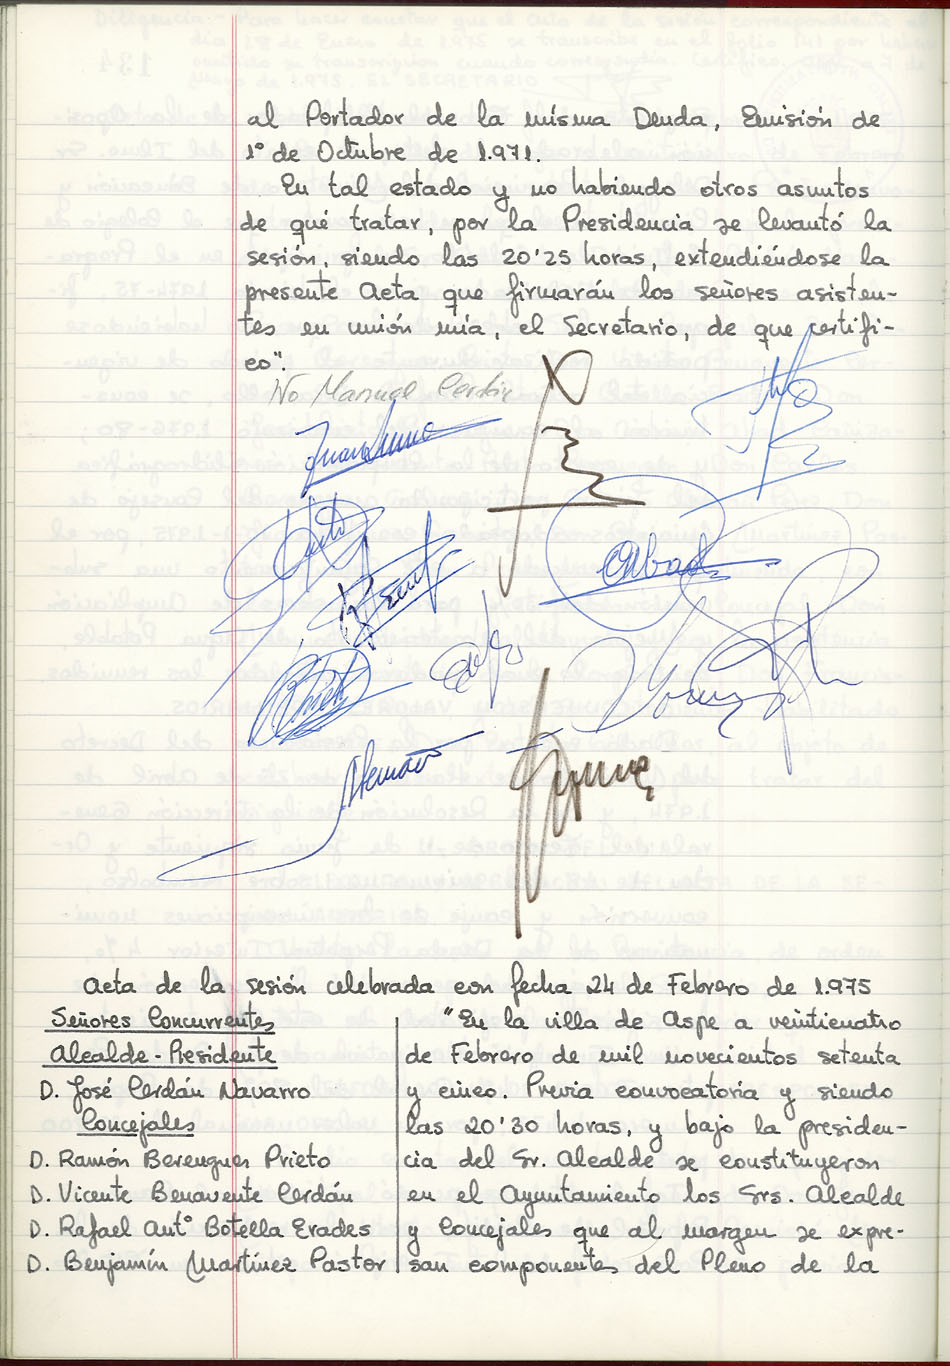 al Portador de la misma Deuda, Emisión de
1º de Octubre de 1.971.
En tal estado y no habiendo otros asuntos
de qué tratar, por la Presidencia se levantó la
sesión, siendo las 20'25 horas, extendiéndose la
presente Acta que firmarán los señores asisten-
tes en unión mía, el Secretario, de que certifi-
co".
No Manuel Cerdán
Abad
Alemañ
Acta de la sesión celebrada con fecha 24 de Febrero de 1.975
Señores Concurrentes
Alcalde-Presidente
D. José Cerdán Navarro
Concejales
D. Ramón Berenguer Prieto
D. Vicente Benavente Cerdán
D. Rafael Antº Botella Erades
D. Benjamín Martínez Pastor
"En la villa de Aspe a veinticuatro
de Febrero de mil novecientos setenta
y cinco. Previa convocatoria y siendo
las 20'30 horas, y bajo la presiden-
cia del Sr. Alcalde se constituyeron
en el Ayuntamiento los Srs. Alcalde
y Concejales que al margen se expre-
san componentes del Pleno de la